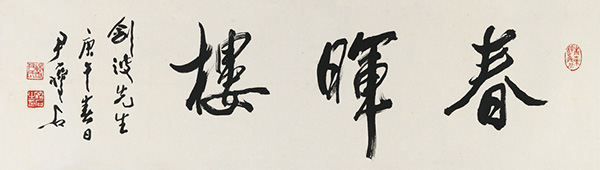 春暉樓
劍波先生
庚午春日
尹瘦石